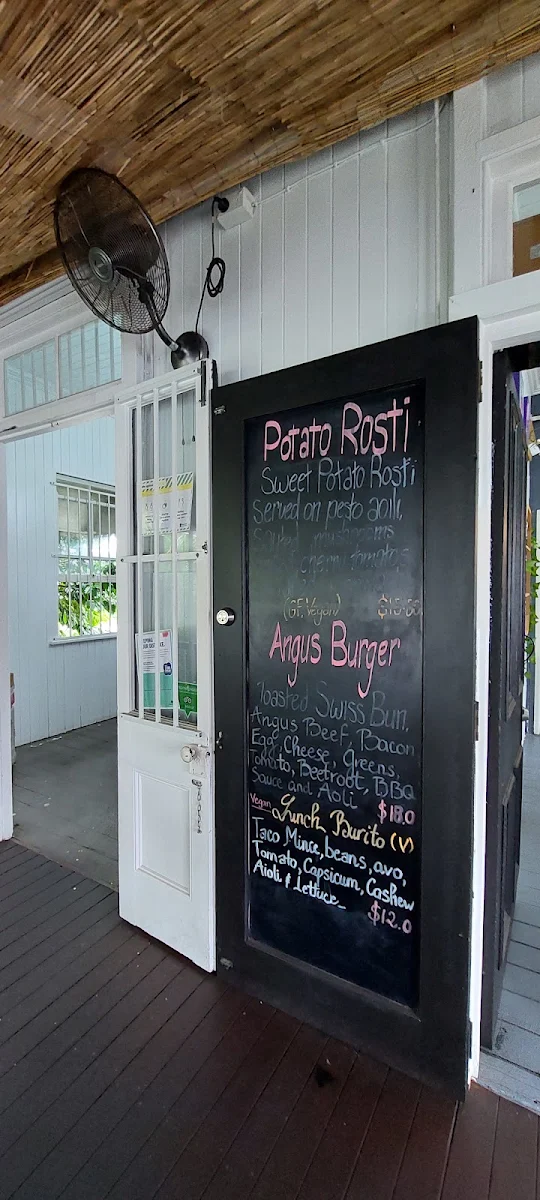 Potato Rosti
Sweet Potato Rosti
Served on pesto aoili,
mushrooms
cherry tomatoes
(GF, Vegan) $15.00
Angus Burger
Toasted Swiss Bun,
Angus Beef, Bacon
Egg, Cheese, Greens,
Tomato, Beetroot, BBQ
Sauce and Aoli
$18.0
Vegan Lunch Burito (V)
Taco Mince, beans, avo,
Tomato, Capsicum, Cashew
Aioli & Lettuce
$12.0